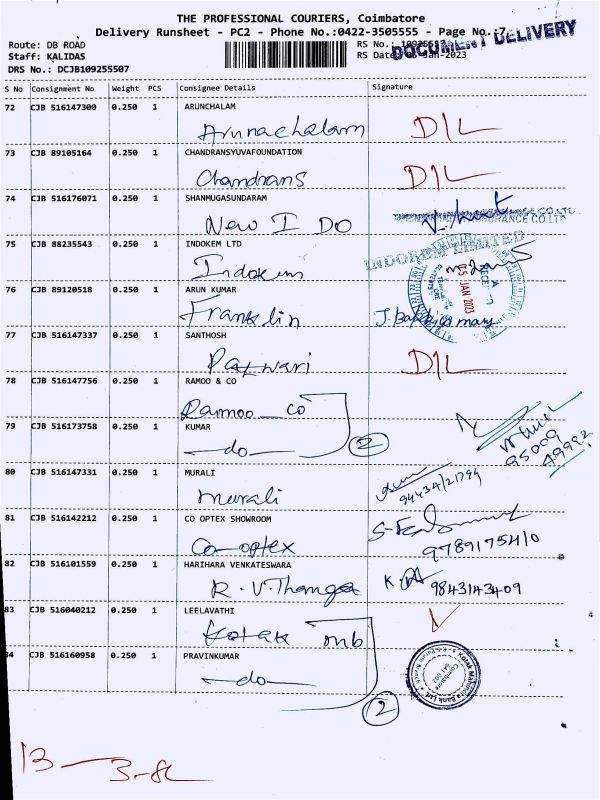 THE PROFESSIONAL COURIERS, Coimbatore
Delivery Runsheet - PC2 - Phone No.:0422-3505555 - Page No.:7
DOCUMENT DELIVERY
Route: DB ROAD
Staff: KALIDAS
DRS No.: DCJB109255507
RS No.:
RS Date: -Jan-2023
S No Consignment No Weight PCS Consignee Details Signature
72 CJB 516147300 0.250 1 ARUNCHALAM
Arunachalam D/L
73 CJB 89105164 0.250 1 CHANDRANSYUVAFOUNDATION
Chandrans D/L
74 CJB 516176071 0.250 1 SHANMUGASUNDARAM
New I Do
75 CJB 88235543 0.250 1 INDOKEM LTD
Indokem
INDOKEM LIMITED
76 CJB 89120518 0.250 1 ARUN KUMAR
05 JAN 2023
Franklin
77 CJB 516147337 0.250 1 SANTHOSH
D/L
78 CJB 516147756 0.250 1 RAMOO & CO
Ramoo co
79 CJB 516173758 0.250 1 KUMAR
-do- 2
95009
49992
80 CJB 516147331 0.250 1 MURALI
Murali
94434/21794
81 CJB 516142212 0.250 1 CO OPTEX SHOWROOM
Co-optex
9789175410
82 CJB 516101559 0.250 1 HARIHARA VENKATESWARA
R.V.Thanga
9843143409
83 CJB 516040212 0.250 1 LEELAVATHI
Kotak mb
84 CJB 516160958 0.250 1 PRAVINKUMAR
-do- 2
Kotak Mahindra Bank Ltd.
Coimbatore
13 - 3-DL